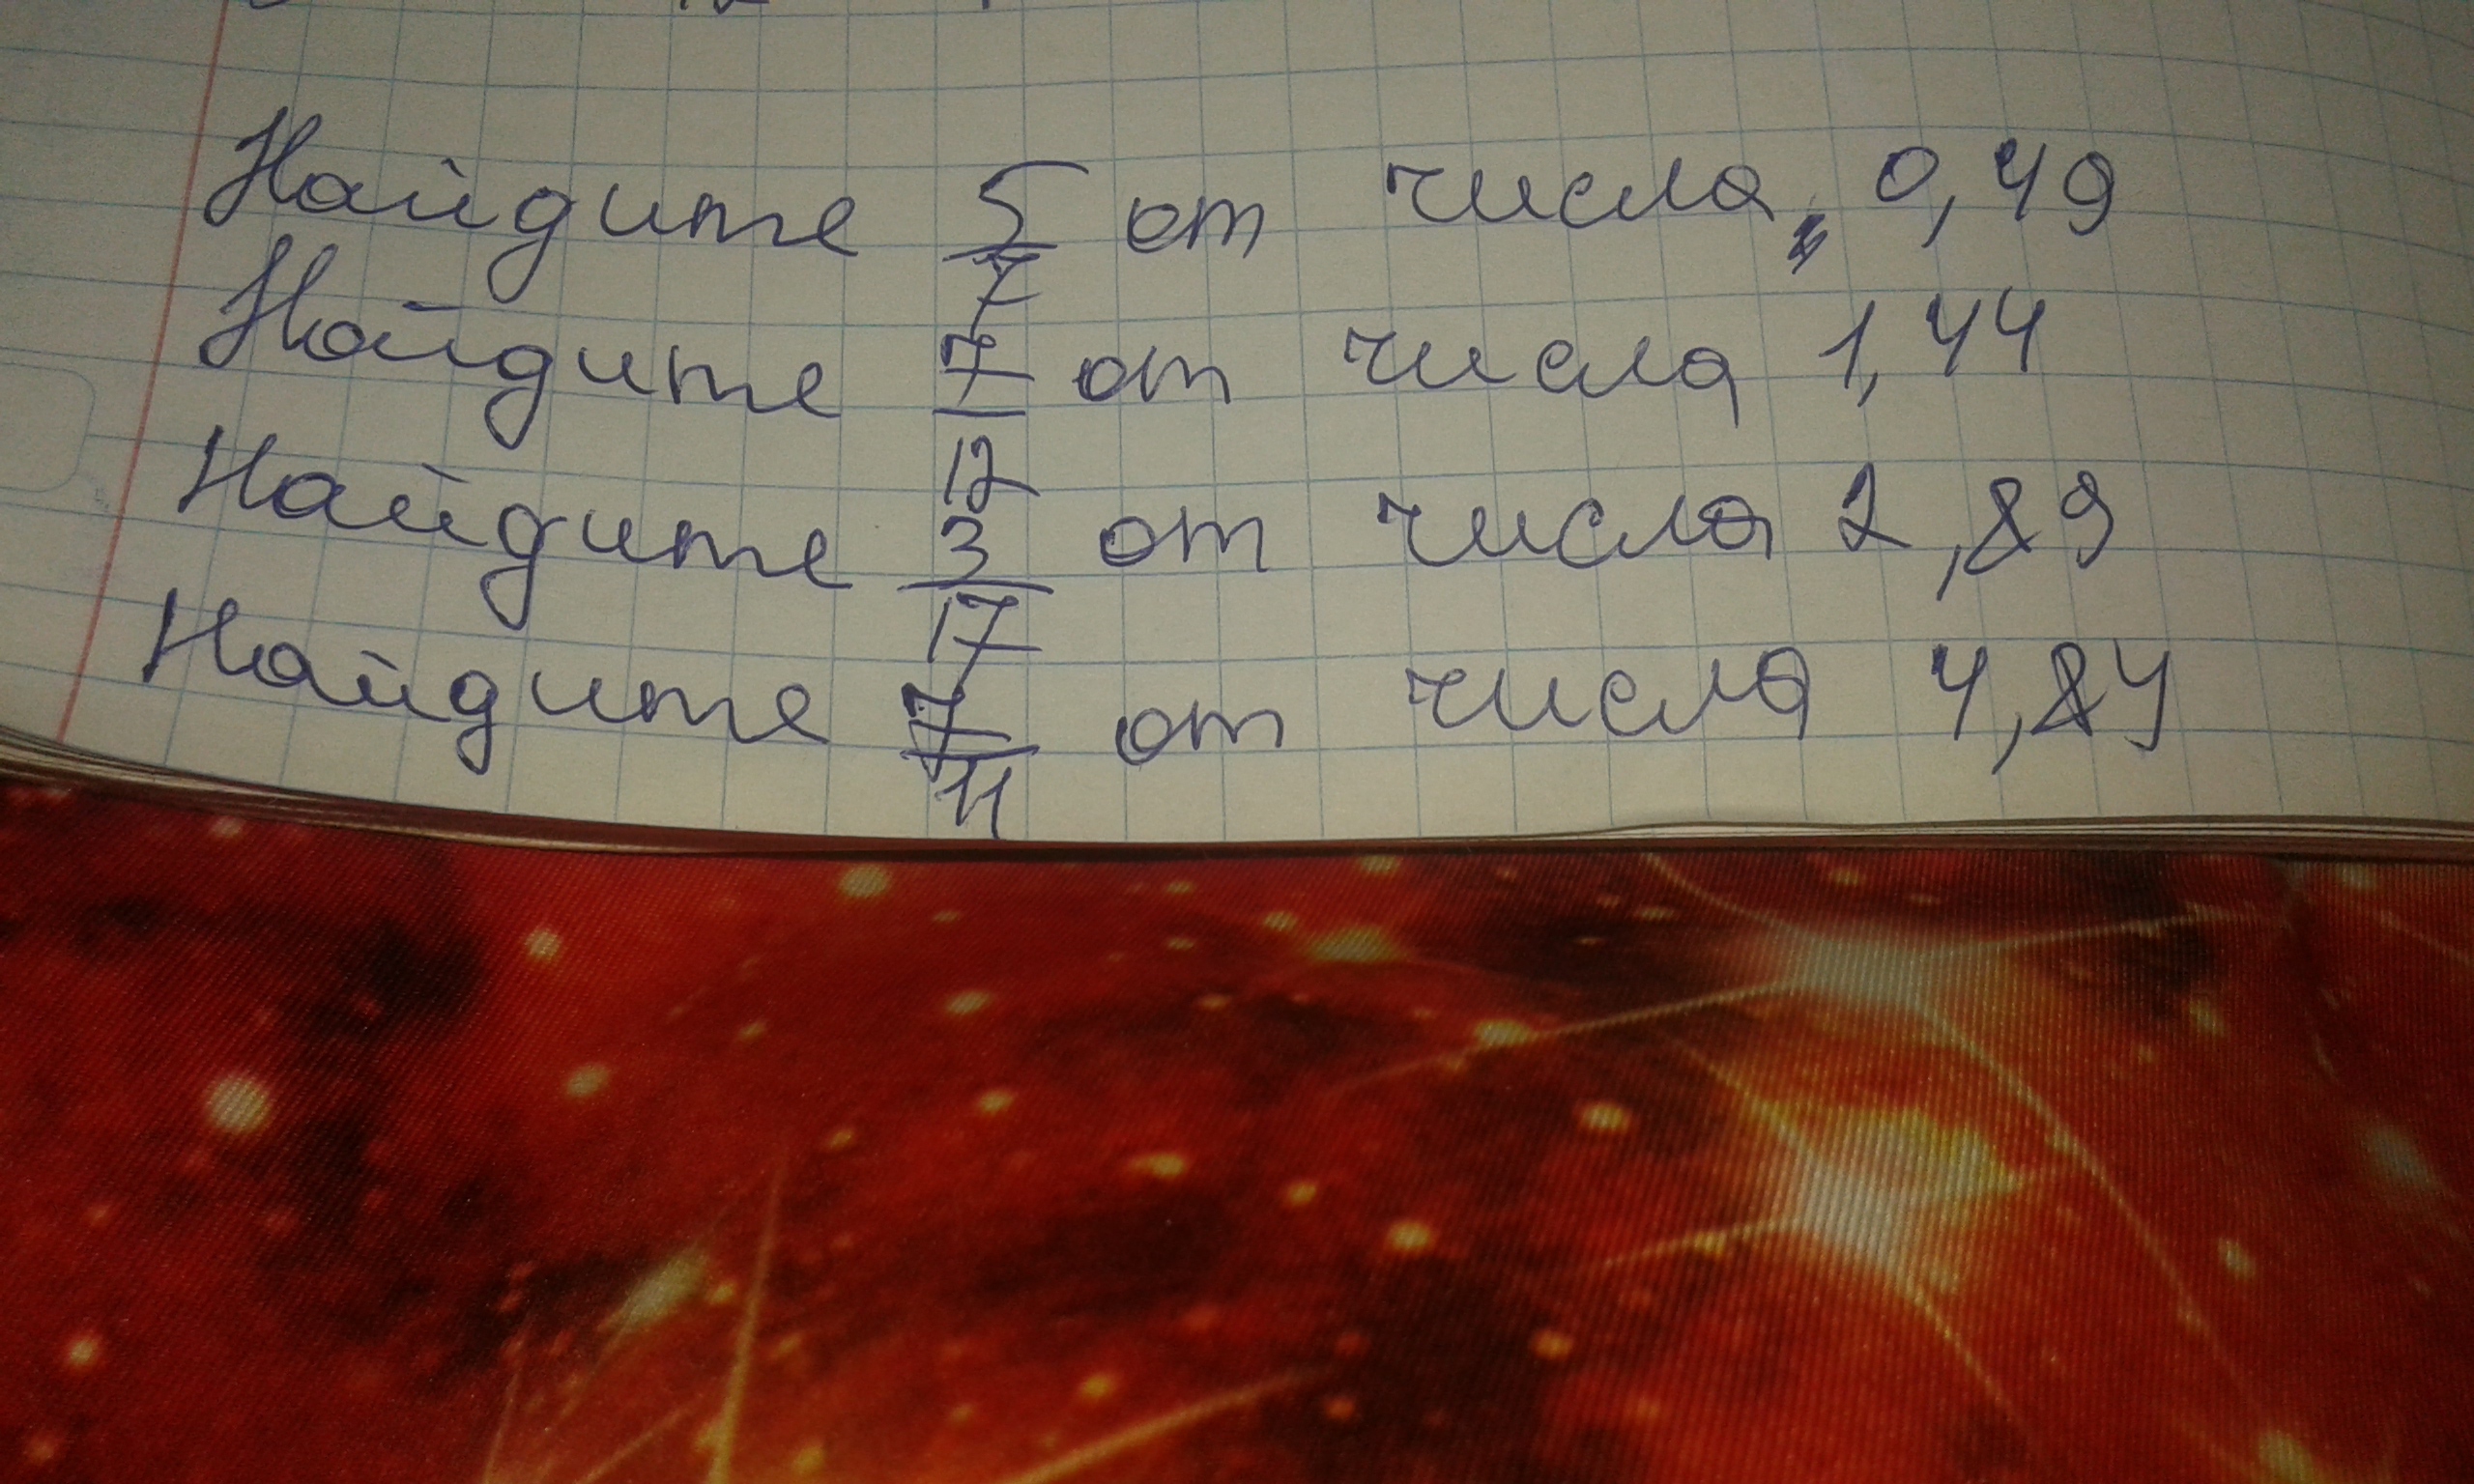 Найдите 5/7 от числа 0,49
Найдите 7/12 от числа 1,44
Найдите 3/17 от числа 2,89
Найдите 7/11 от числа 4,84